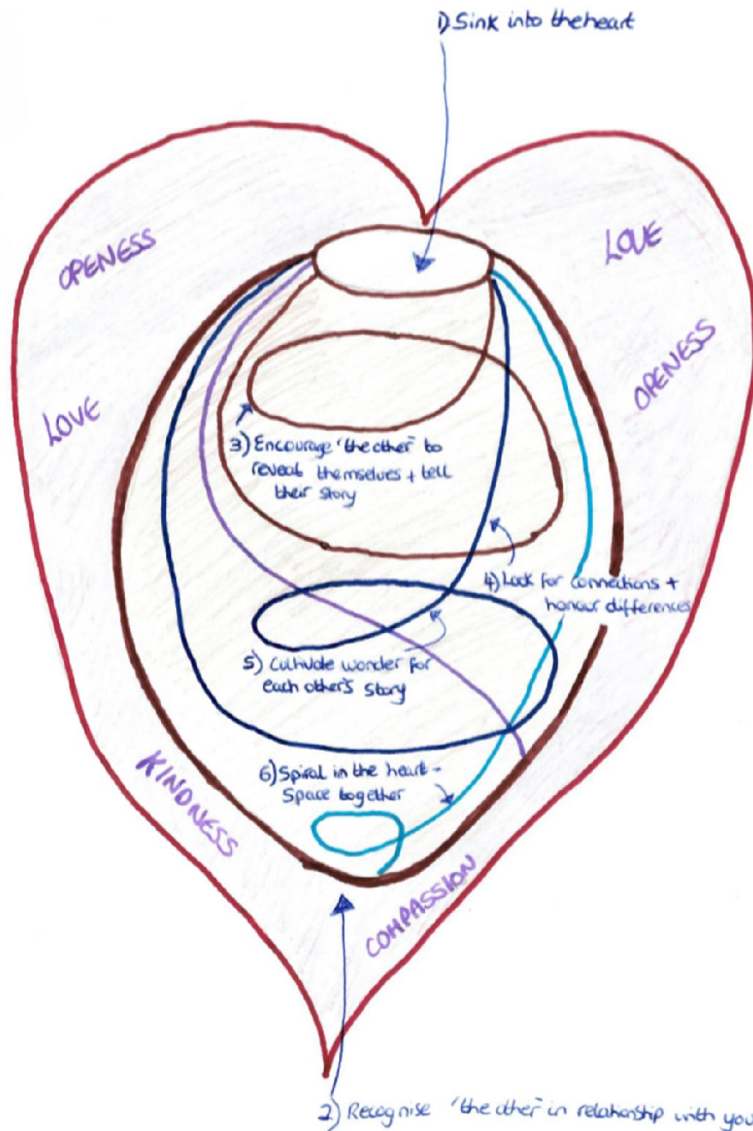 1) Sink into the heart
OPENESS
LOVE
LOVE
OPENESS
3) Encourage 'the other' to
reveal themselves + tell
their story
4) Look for connections +
honour differences
5) Cultivate wonder for
each other's story
6) Spiral in the heart-
Space together
KINDNESS
COMPASSION
2) Recognise 'the other' in relationship with you